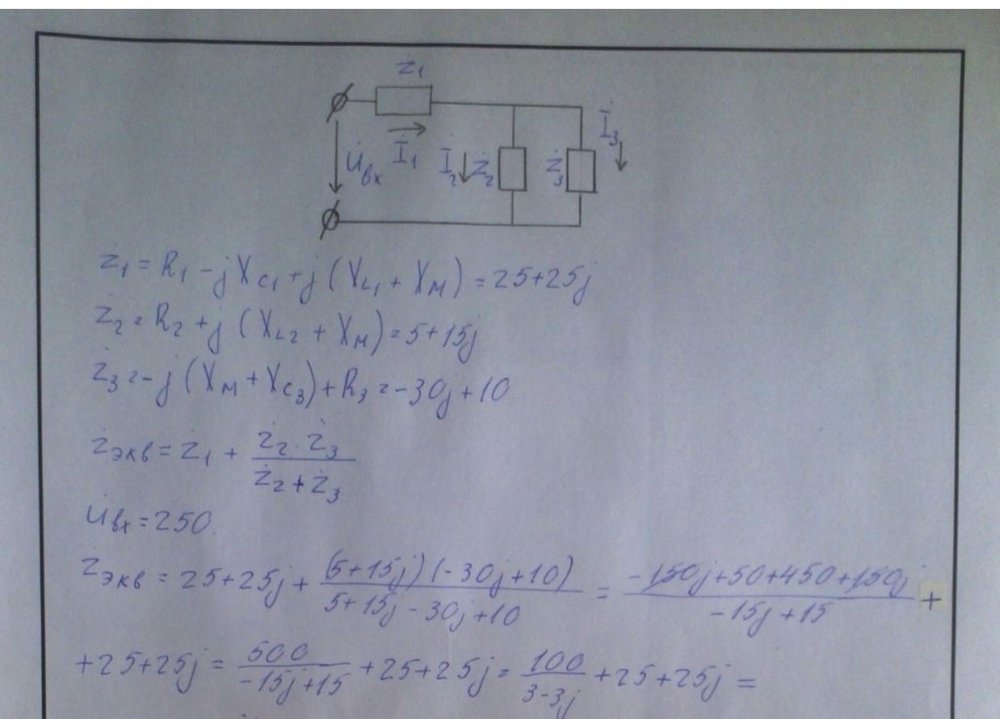 Z₁
U̇вх İ₁ İ₂ Ż₂ Ż₃ İ₃
Ż₁ = R₁ - jXC₁ + j(XL₁ + XM) = 25+25j
Ż₂ = R₂ + j(XL₂ + XM) = 5+15j
Ż₃ = -j(XM + XC₃) + R₃ = -30j+10
Żэкв = Ż₁ + (Ż₂ · Ż₃)/(Ż₂ + Ż₃)
U̇вх = 250.
Żэкв = 25+25j + ((5+15j)(-30j+10))/(5+15j-30j+10) = (-150j+50+450+150j)/(-15j+15) +
+25+25j = 500/(-15j+15) + 25+25j = 100/(3-3j) + 25+25j =